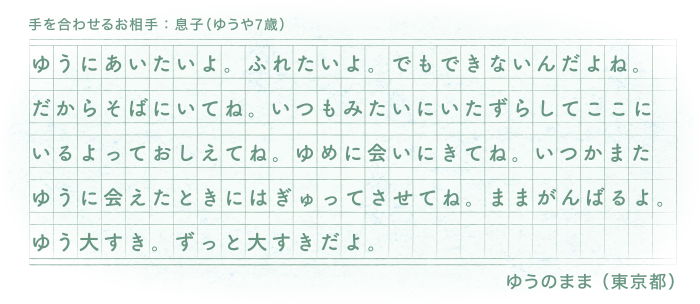 手を合わせるお相手：息子（ゆうや7歳）
ゆうにあいたいよ。ふれたいよ。でもできないんだよね。
だからそばにいてね。いつもみたいにいたずらしてここに
いるよっておしえてね。ゆめに会いにきてね。いつかまた
ゆうに会えたときにはぎゅってさせてね。ままがんばるよ。
ゆう大すき。ずっと大すきだよ。
ゆうのまま（東京都）